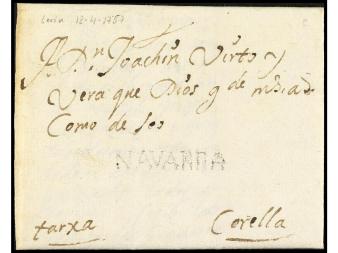 Lerín 12-4-1757
A Dn Joachin Virto y
Vera que Dios g de ms a
Como de seo
NAVARRA
tarxa Corella